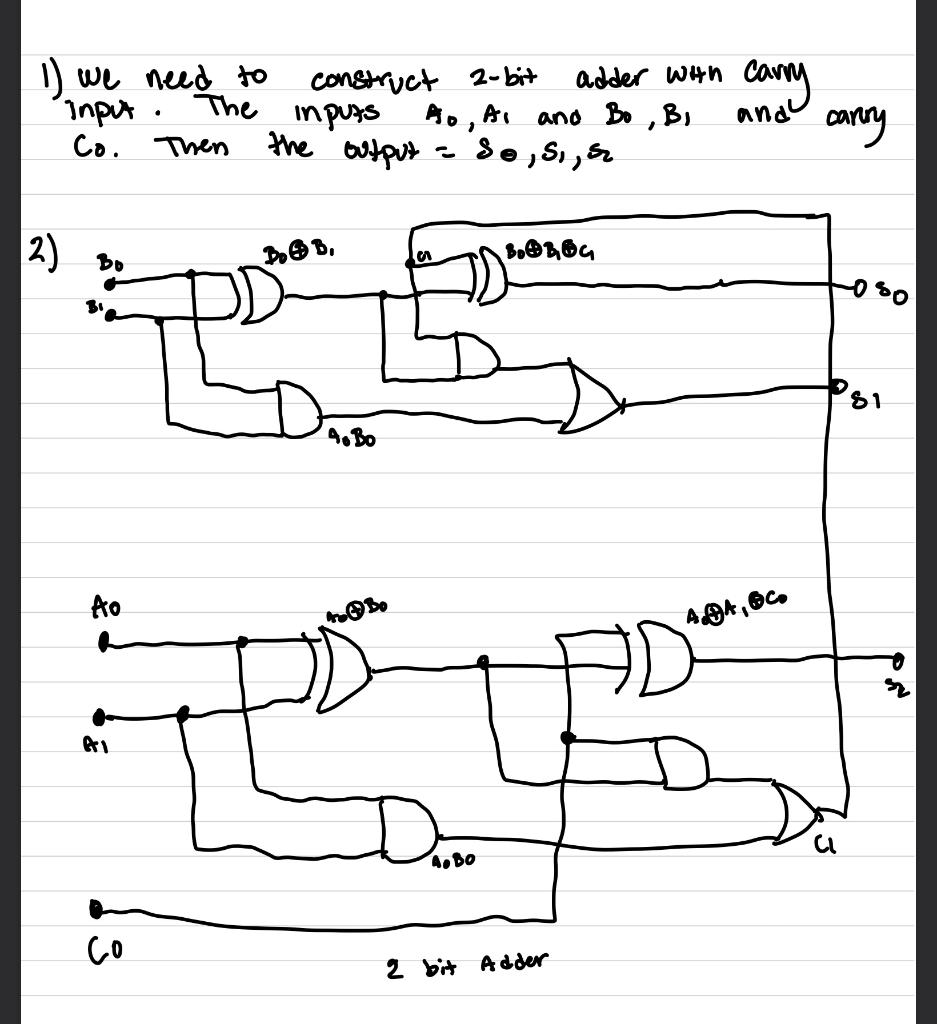 1) We need to construct 2-bit adder with Carry
Input. The inputs A0, A1 and B0, B1 and carry
C0. Then the output = S0, S1, S2
2)
B0
B1
B0⊕B1
C1
B0⊕B1⊕C1
S0
S1
A0B0
A0
A0⊕B0
A0⊕A1⊕C0
S2
A1
A0B0
C1
C0
2 bit Adder